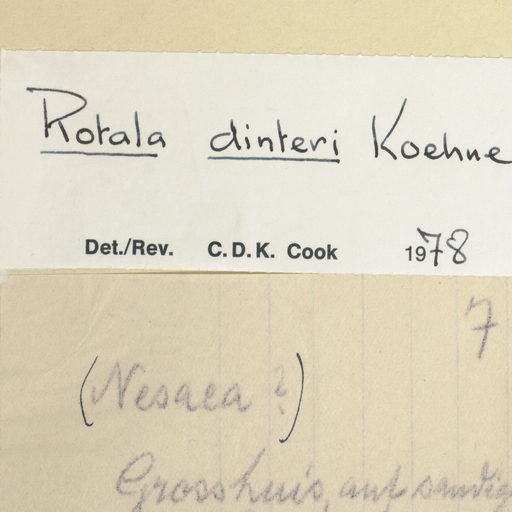 Rotala dinteri Koehne
Det./Rev. C.D.K. Cook 1978
7
(Nesaea ?)
Grosshuis, auf sandig